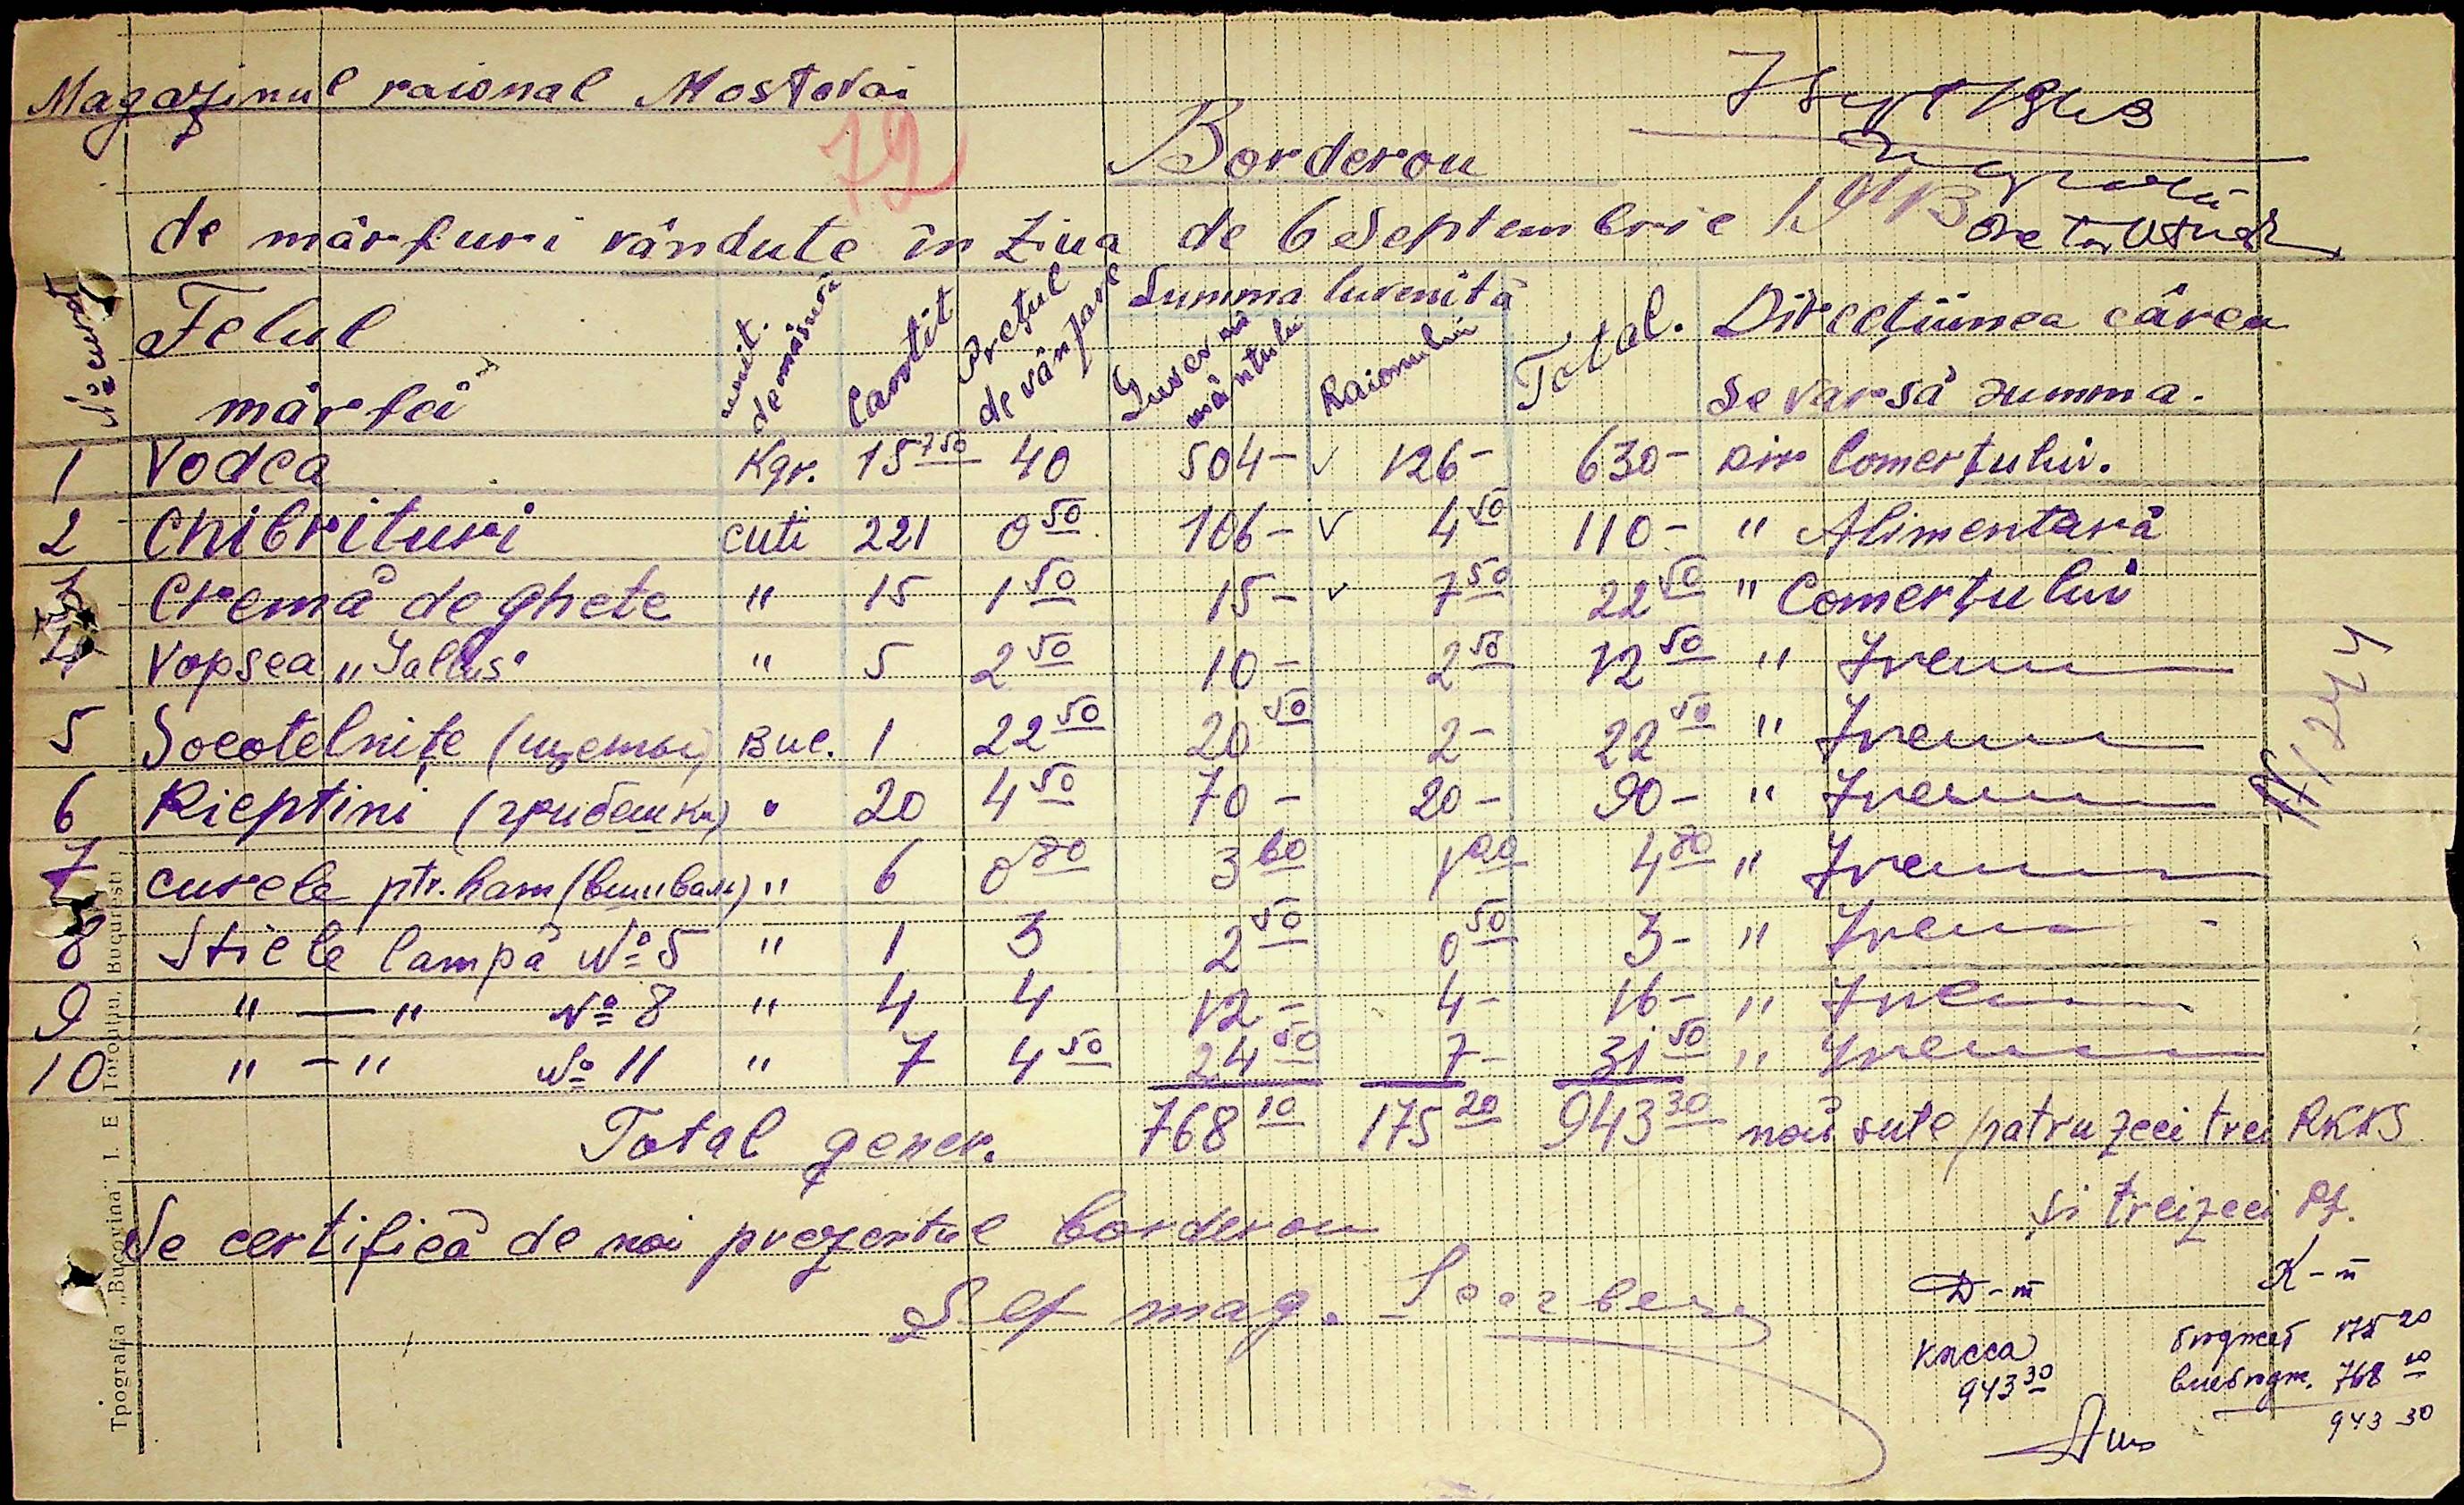 Magazinul raional Mostovoi
7 Sept 1943
72
Borderou
de mărfuri vândute în ziua de 6 Septembrie 1943
№ curent
Felul mărfei
unit. de măsură
Cantit
Prețul de vânzare
Summa cuvenită
Guvernământului
Raionului
Total.
Direcțiunea cărea se varsă summa.
1 Vodca Kgr. 15 750 40 504- v 126- 630- Dir Comerțului.
2 Chibrituri cuti 221 0 50 106- v 4 50 110- " Alimentară
3 Cremă de ghete " 15 1 50 15- v 7 50 22 50 " Comerțului
4 Vopsea „Gallus" " 5 2 50 10- 2 50 12 50 " Irem
5 Socotelnițe (щеты) Buc. 1 22 50 20 50 2- 22 50 " Irem
6 Pieptini (гребешки) " 20 4 50 70- 20- 90- " Irem
7 curele ptr. ham " 6 0 80 3 60 1 20 4 80 " Irem
8 Sticle lampă № 5 " 1 3 2 50 0 50 3- " Irem
9 " — " № 8 " 4 4 12- 4- 16- " Irem
10 " - " № 11 " 7 4 50 24 50 7- 31 50 " Irem
Total gener. 768 10 175 20 943 30 noă sute patruzeci trei RKKS
și treizeci Pf.
Se certifică de noi prezentul borderou
Șef mag.
Д-т К-т
Касса 943 30
бюджет 175 20
внебюдж. 768 10
943 30
Tipografia „Bucovina" I. E. Torouțiu, București